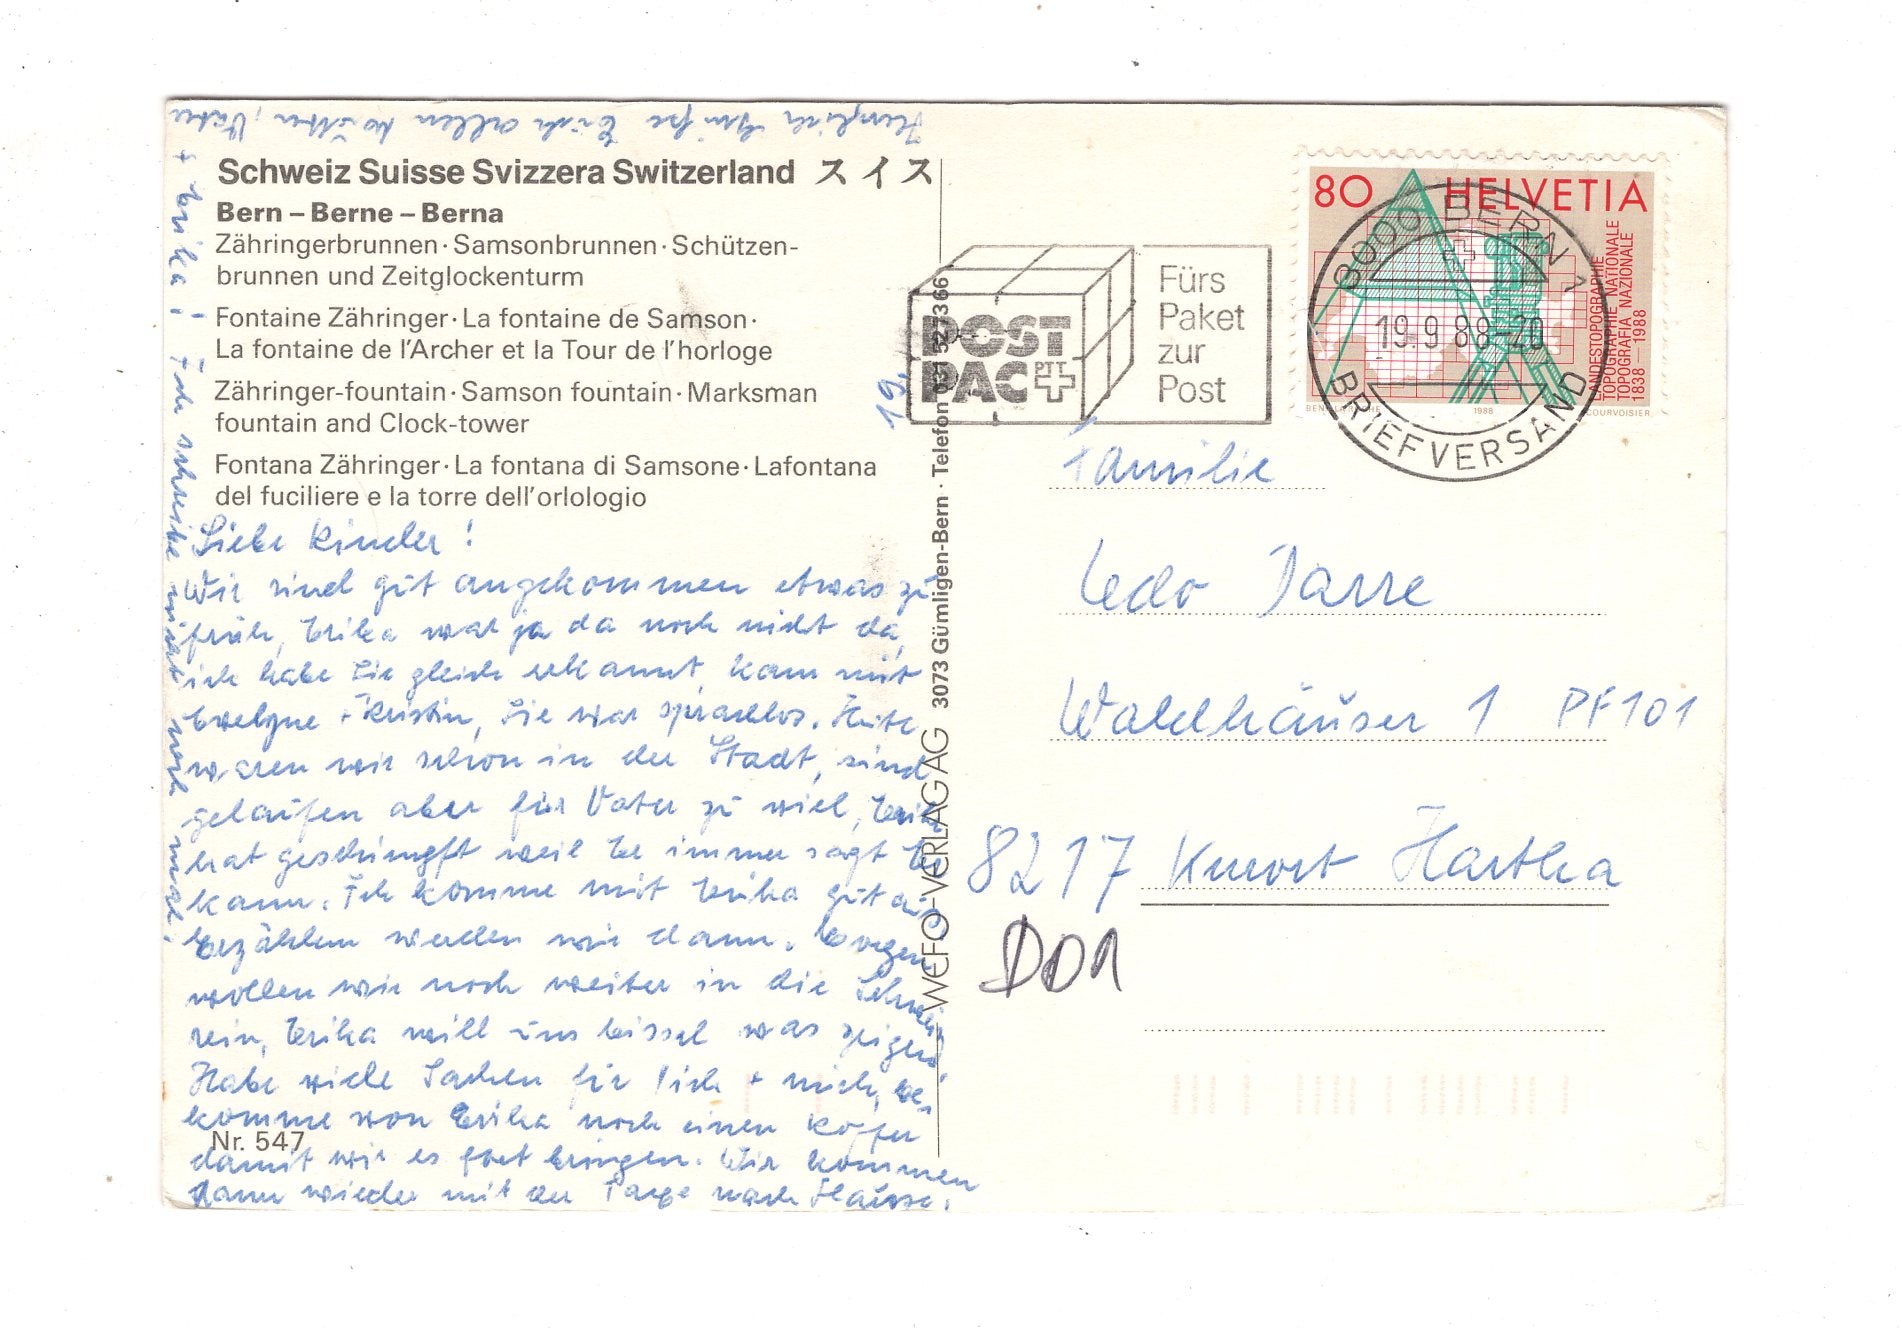 Schweiz Suisse Svizzera Switzerland スイス
Bern – Berne – Berna
Zähringerbrunnen · Samsonbrunnen · Schützen-
brunnen und Zeitglockenturm
Fontaine Zähringer · La fontaine de Samson ·
La fontaine de l'Archer et la Tour de l'horloge
Zähringer-fountain · Samson fountain · Marksman
fountain and Clock-tower
Fontana Zähringer · La fontana di Samsone · Lafontana
del fuciliere e la torre dell'orlologio
Liebe Kinder!
Wir sind gut angekommen etwas zu
früh, Erika war ja da noch nicht da,
ich habe Sie gleich erkannt, kam mit
Evelyne + Kristin, Sie war sprachlos. Heute
waren wir schon in der Stadt, sind
gelaufen aber für Vater zu viel, Erika
hat geschimpft weil Er immer sagt Er
kann. Ich komme mit Erika gut aus
Erzählen werden wir dann. Morgen
wollen wir noch weiter in die Schweiz
rein, Erika will uns bissel was zeigen.
Habe viele Sachen für Dich + mich, be-
komme von Erika noch einen Koffer
damit wir es fort bringen. Wir kommen
dann wieder mit der Taxe nach Hause.
Nr. 547
Herzliche Grüße Euch allen Mutter, Vater
+ Erika! Ich schreibe nicht noch mal.
19.
WEFO-VERLAG AG 3073 Gümligen-Bern · Telefon 031 527366
POST
PAC PTT
Fürs
Paket
zur
Post
80 HELVETIA
LANDESTOPOGRAPHIE
TOPOGRAPHIE NATIONALE
TOPOGRAFIA NAZIONALE
1838–1988
1988
COURVOISIER
3000 BERN 1
19.9.88-20
BRIEFVERSAND
Familie
Udo Jarre
Waldhäuser 1 PF 101
8217 Kurort Hartha
DDR